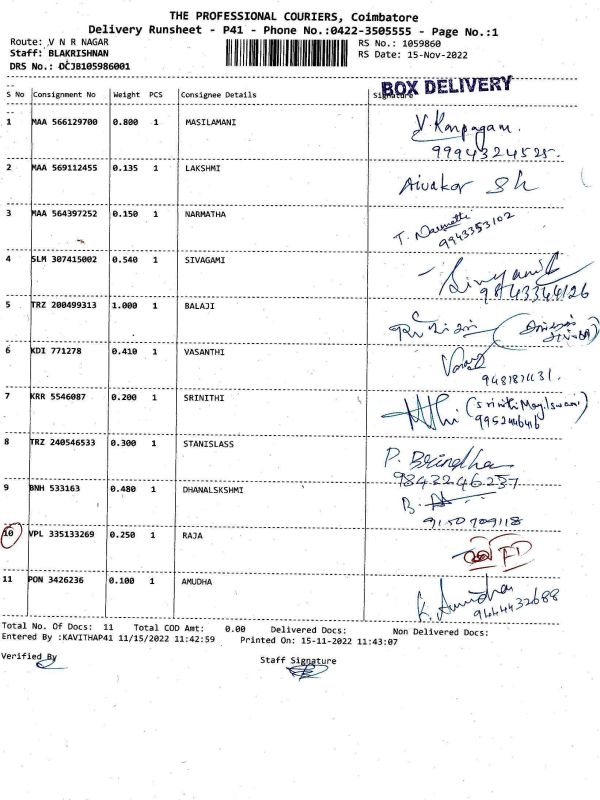 THE PROFESSIONAL COURIERS, Coimbatore
Delivery Runsheet - P41 - Phone No.:0422-3505555 - Page No.:1
Route: V N R NAGAR RS No.: 1059860
Staff: BLAKRISHNAN RS Date: 15-Nov-2022
DRS No.: DCJB105986001
BOX DELIVERY
S No Consignment No Weight PCS Consignee Details Signature
1 MAA 566129700 0.800 1 MASILAMANI V. Karpagam.
9994324525.
2 MAA 569112455 0.135 1 LAKSHMI
3 MAA 564397252 0.150 1 NARMATHA T. Narmathi
9943353102
4 SLM 307415002 0.540 1 SIVAGAMI
9843344126
5 TRZ 200499313 1.000 1 BALAJI
6 KDI 771278 0.410 1 VASANTHI
7 KRR 5546087 0.200 1 SRINITHI
9952446416
8 TRZ 240546533 0.300 1 STANISLASS P. Brindha
9843246237
9 BNH 533163 0.480 1 DHANALSKSHMI B.
9150709118
10 VPL 335133269 0.250 1 RAJA
11 PON 3426236 0.100 1 AMUDHA K. Amudha
9444432688
Total No. Of Docs: 11 Total COD Amt: 0.00 Delivered Docs: Non Delivered Docs:
Entered By :KAVITHAP41 11/15/2022 11:42:59 Printed On: 15-11-2022 11:43:07
Verified By Staff Signature